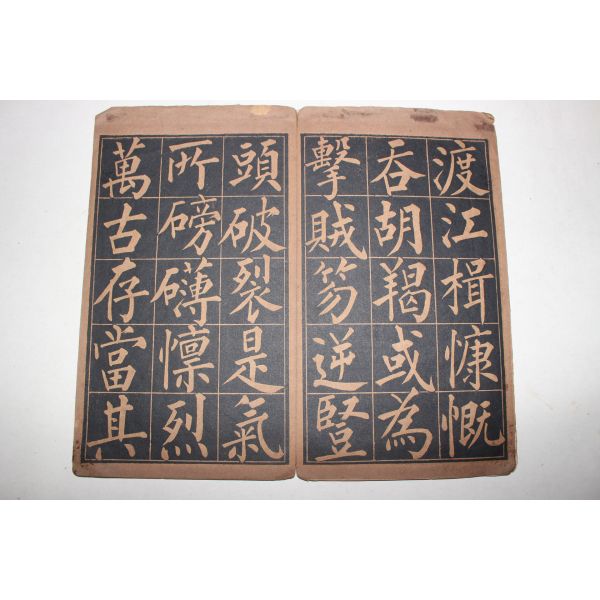 渡江楫慷慨
吞胡羯或為
擊賊笏逆豎
頭破裂是氣
所磅礡懍烈
萬古存當其